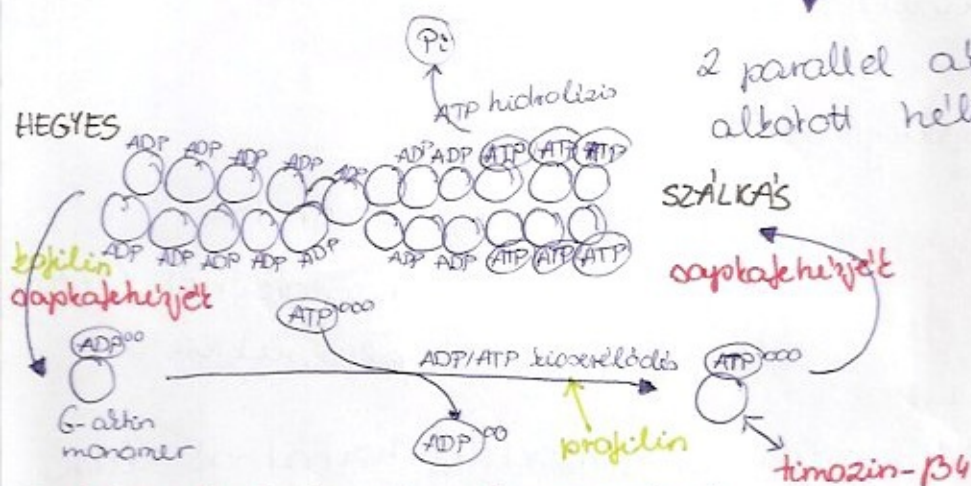 Pi
2 parallel
ATP hidrolízis
alkotott
HEGYES
ADP ADP ADP ADP ADP ADP ADP ATP ATP ATP
SZÁLKÁS
ADP ADP ADP ADP ADP ADP ADP ATP ATP ATP
kofilin
sapkafehérjék
sapkafehérjék
ATP
ADP
ADP/ATP kicserélődés
ATP
G-aktin
monomer
ADP
profilin
timozin-β4